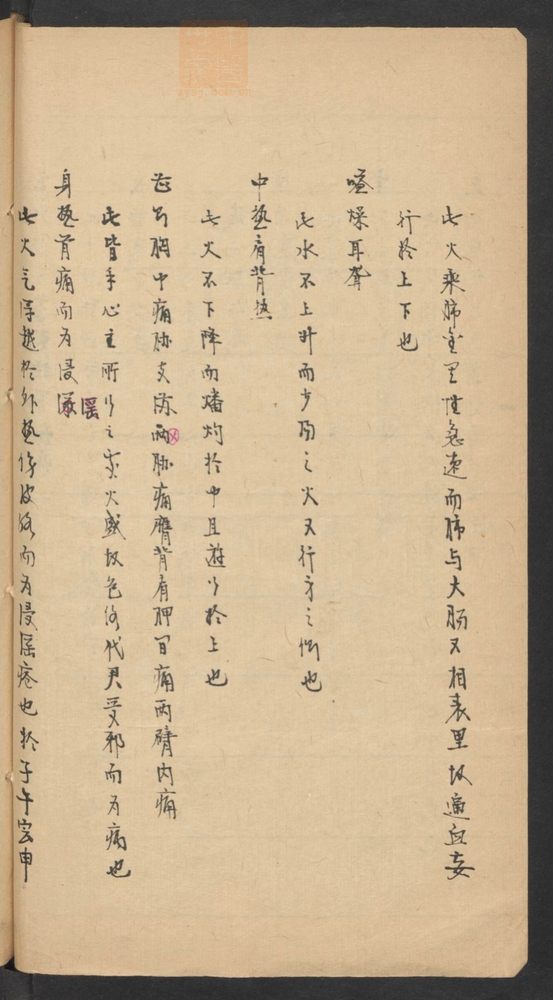 此火乘肺金因其性急速而肺与大肠又相表里故逼血妄
行於上下也
嗌燥耳聋
此水不上升而少阳之火又行步之㑊也
中热肩背热
此火不下降而燔灼於中且游行於上也
甚则胸中痛胁支满两胁痛膺背肩胛间痛两臂内痛
此皆手心主所行之处火盛故包络代君受邪而为病也
身热骨痛而为浸淫
此火气浮越於外热伤皮络而为浸淫疮也於子午寅申